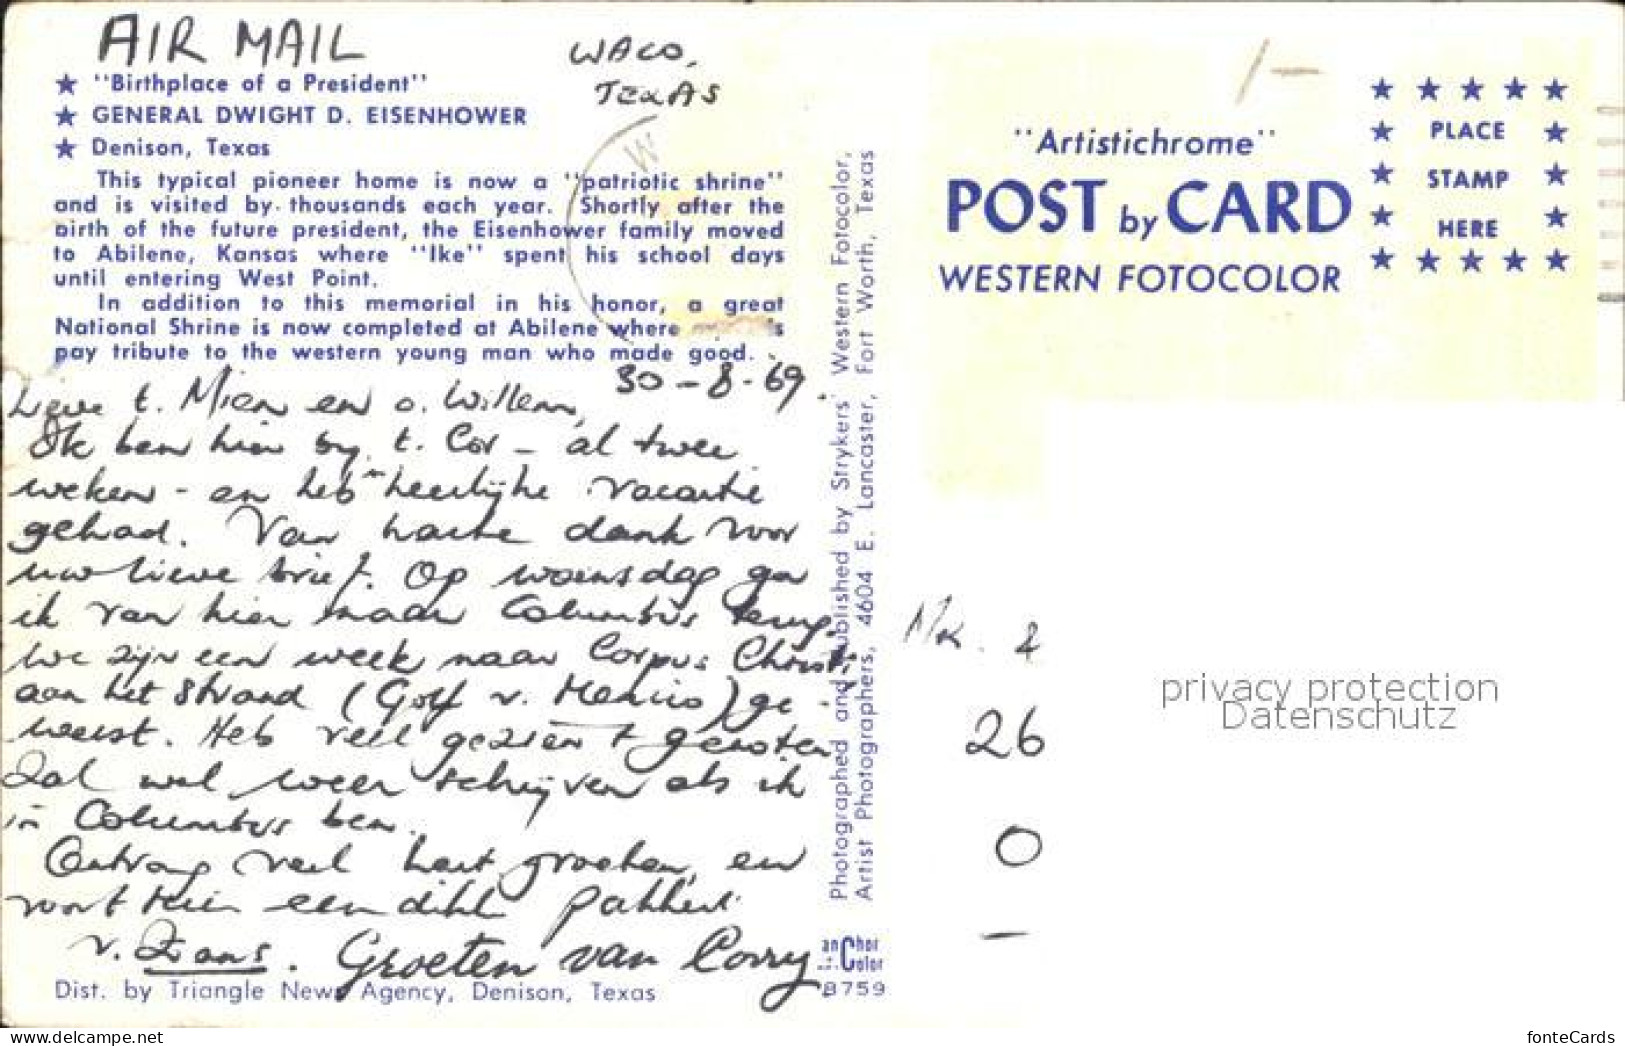 AIR MAIL
WACO,
TEXAS
★ "Birthplace of a President"
★ GENERAL DWIGHT D. EISENHOWER
★ Denison, Texas
This typical pioneer home is now a "patriotic shrine"
and is visited by thousands each year. Shortly after the
birth of the future president, the Eisenhower family moved
to Abilene, Kansas where "Ike" spent his school days
until entering West Point.
In addition to this memorial in his honor, a great
National Shrine is now completed at Abilene where
pay tribute to the western young man who made good.
30-8-69.
Lieve t. Mien en o. Willem,
Ik ben hier by t. Cor – al twee
weken – en heb 'n heerlijke vacantie
gehad. Van harte dank voor
uw lieve brief. Op woensdag ga
ik van hier naar Columbus terug.
We zijn een week naar Corpus Christi
aan het strand (Golf v. Mexico) ge-
weest. Heb veel gezien + genoten
Zal wel weer schrijven als ik
in Columbus ben.
Ontvang veel hart. groeten, en
een dikke pakkert
v. Zs. Groeten van Corry
Dist. by Triangle News Agency, Denison, Texas
Photographed and Published by Strykers' Western Fotocolor,
Artist Photographers, 4604 E. Lancaster, Fort Worth, Texas
anChor
Color
B759
1-
"Artistichrome"
POST by CARD
WESTERN FOTOCOLOR
★ ★ ★ ★ ★
★ PLACE ★
★ STAMP ★
★ HERE ★
★ ★ ★ ★ ★
26
0
–
privacy protection
Datenschutz
www.delcampe.net
fonteCards